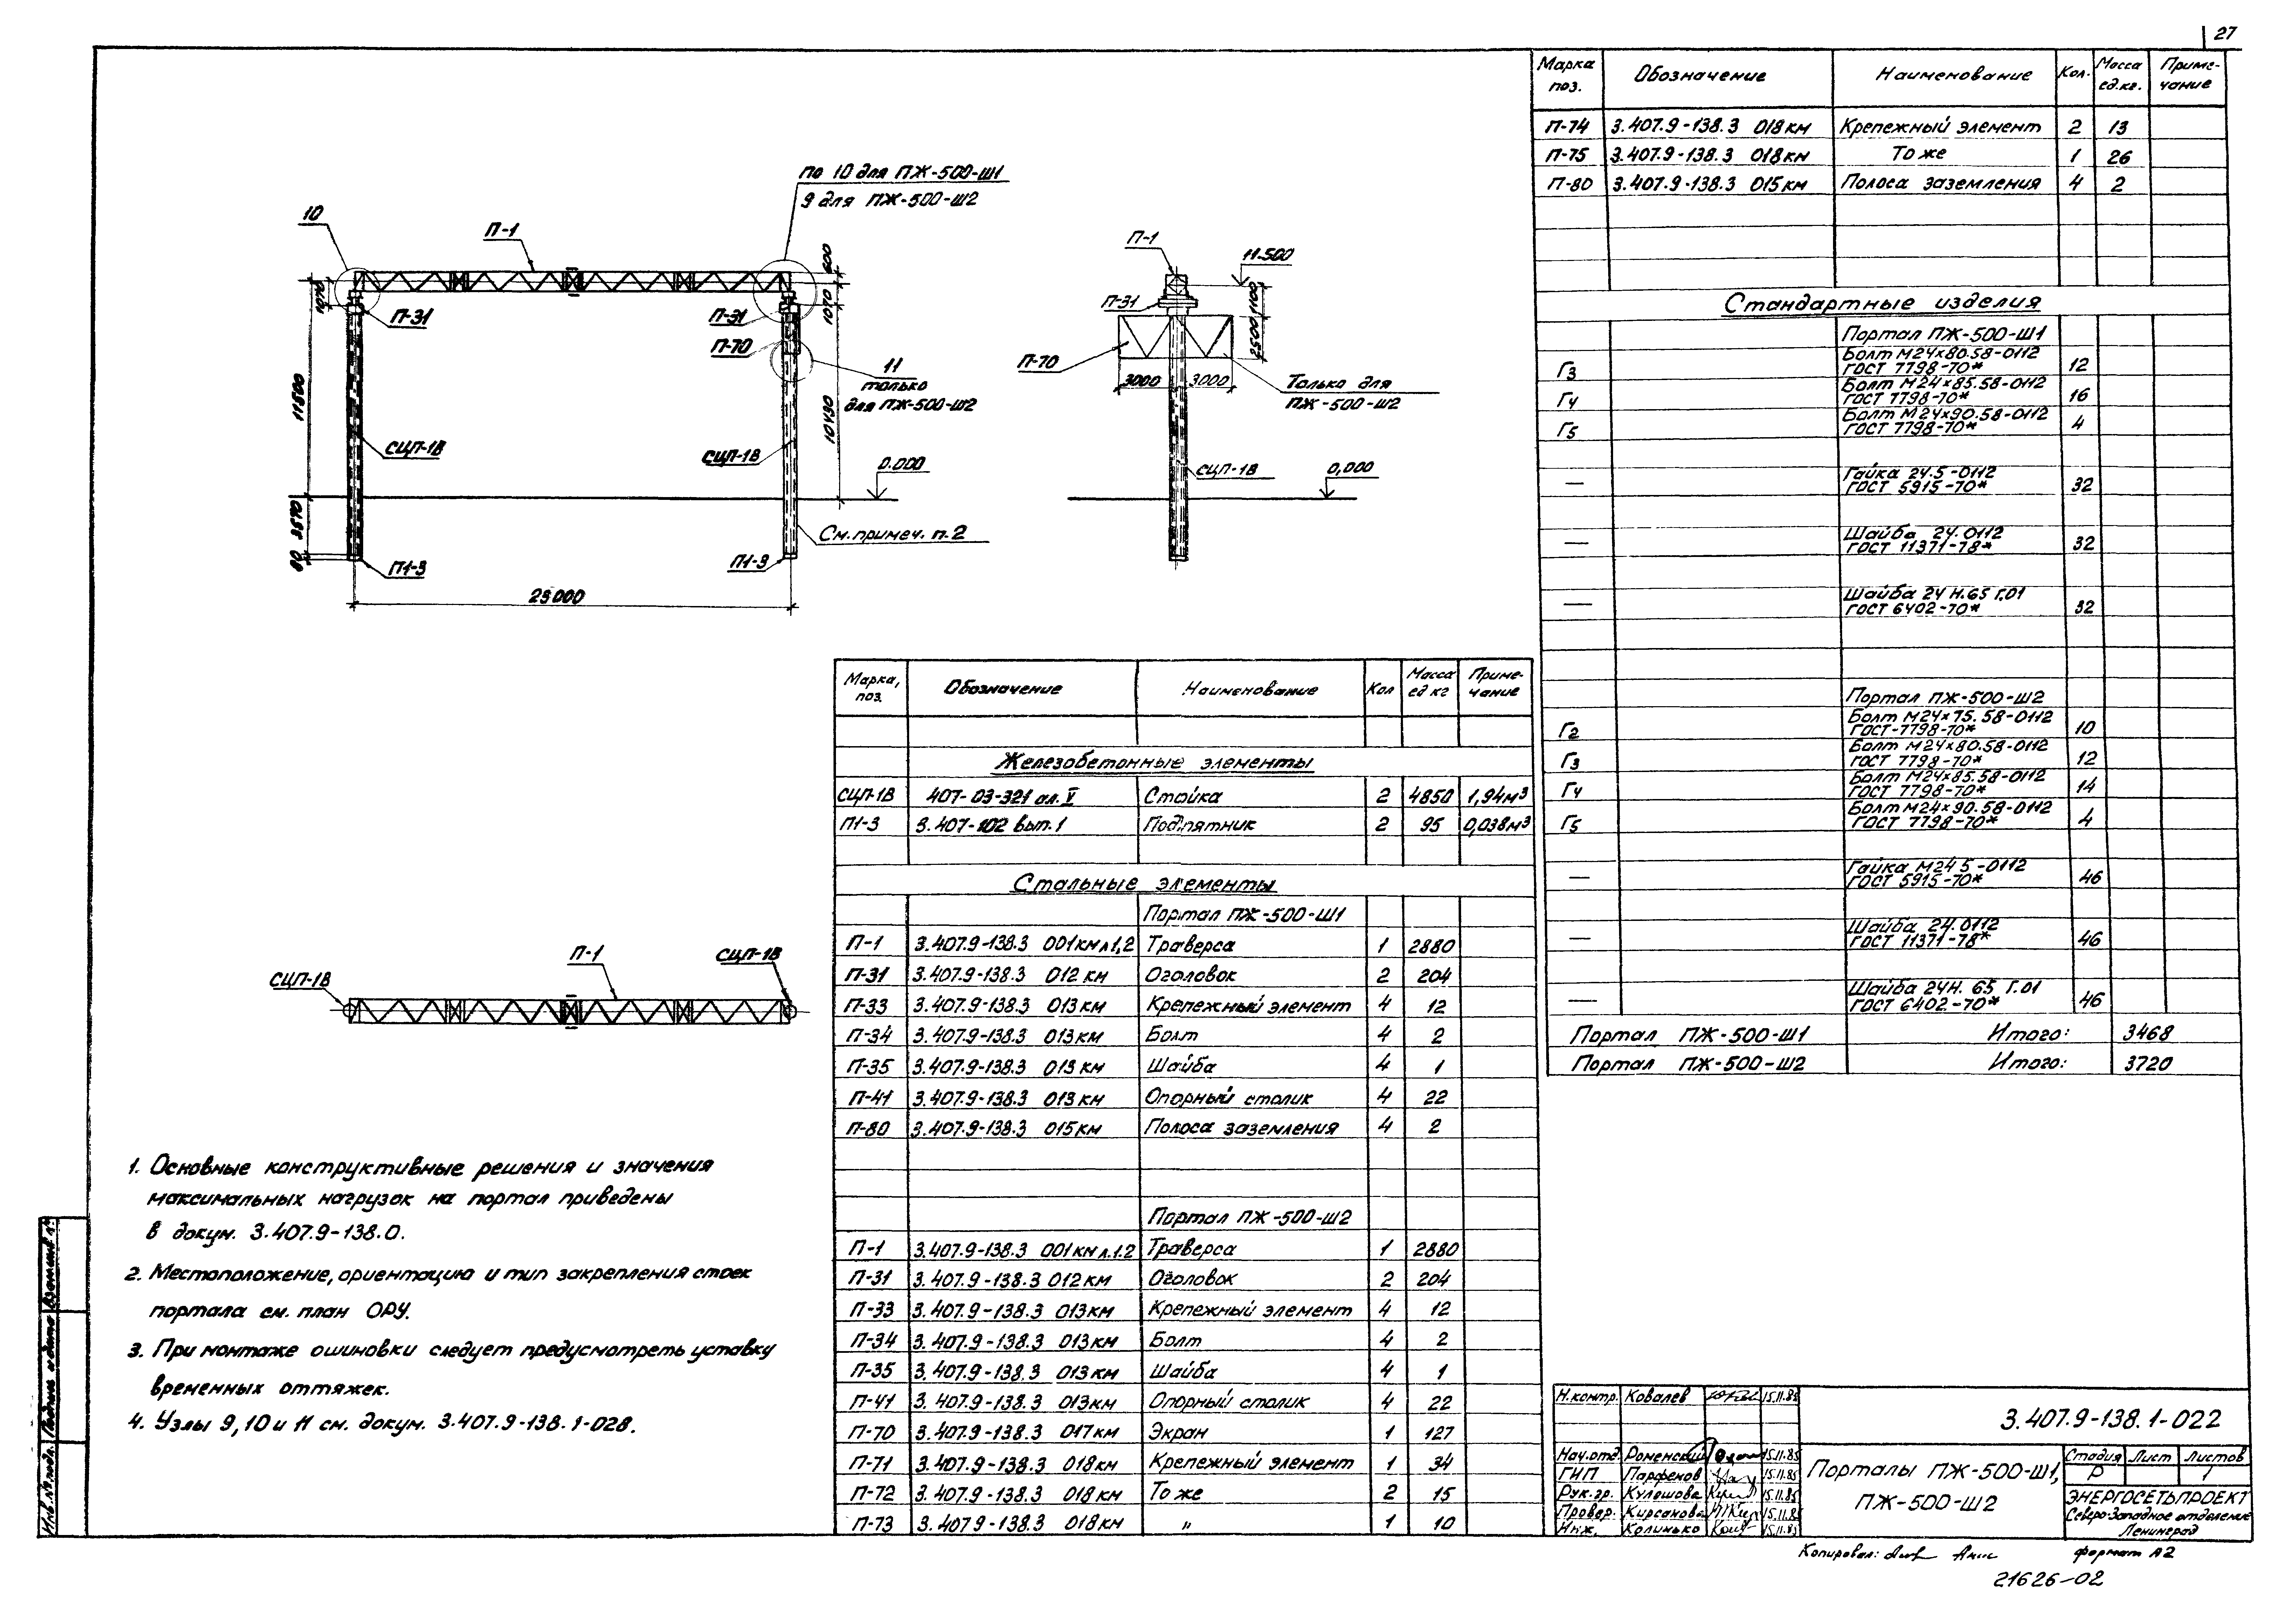 27
по 10 для ПЖ-500-Ш1
9 для ПЖ-500-Ш2
10
П-1
600
1070
1070
П-31
П-31
П-70
11
только
для ПЖ-500-Ш2
11500
10430
СЦП-1В
СЦП-1В
0.000
3570
80
П1-3
П1-3
См. примеч. п.2
25000
П-1
11.500
П-31
1100
2500
П-70
3000
3000
Только для
ПЖ-500-Ш2
СЦП-1В
0,000
СЦП-1В
П-1
СЦП-1В
1. Основные конструктивные решения и значения
максимальных нагрузок на портал приведены
в докум. 3.407.9-138.0.
2. Местоположение, ориентацию и тип закрепления стоек
портала см. план ОРУ.
3. При монтаже ошиновки следует предусмотреть уставку
временных оттяжек.
4. Узлы 9, 10 и 11 см. докум. 3.407.9-138.1-028.
Марка, поз. Обозначение Наименование Кол Масса ед кг Приме-чание
Железобетонные элементы
СЦП-1В 407-03-321 ал. V Стойка 2 4850 1,94м³
П1-3 3.407-102 вып. 1 Подпятник 2 95 0,038м³
Стальные элементы
Портал ПЖ-500-Ш1
П-1 3.407.9-138.3 001КМ л.1,2 Траверса 1 2880
П-31 3.407.9-138.3 012 КМ Оголовок 2 204
П-33 3.407.9-138.3 013КМ Крепежный элемент 4 12
П-34 3.407.9-138.3 013КМ Болт 4 2
П-35 3.407.9-138.3 013 КМ Шайба 4 1
П-41 3.407.9-138.3 013КМ Опорный столик 4 22
П-80 3.407.9-138.3 015КМ Полоса заземления 4 2
Портал ПЖ-500-Ш2
П-1 3.407.9-138.3 001КМ л.1.2 Траверса 1 2880
П-31 3.407.9-138.3 012КМ Оголовок 2 204
П-33 3.407.9-138.3 013КМ Крепежный элемент 4 12
П-34 3.407.9-138.3 013КМ Болт 4 2
П-35 3.407.9-138.3 013КМ Шайба 4 1
П-41 3.407.9-138.3 013КМ Опорный столик 4 22
П-70 3.407.9-138.3 017КМ Экран 1 127
П-71 3.407.9-138.3 018КМ Крепежный элемент 1 34
П-72 3.407.9-138.3 018КМ То же 2 15
П-73 3.407.9-138.3 018КМ " 1 10
Марка поз. Обозначение Наименование Кол. Масса ед.кг. Приме-чание
П-74 3.407.9-138.3 018КМ Крепежный элемент 2 13
П-75 3.407.9-138.3 018КМ То же 1 26
П-80 3.407.9-138.3 015КМ Полоса заземления 4 2
Стандартные изделия
Портал ПЖ-500-Ш1
Г3 Болт М24х80.58-0112 ГОСТ 7798-70* 12
Г4 Болт М24х85.58-0112 ГОСТ 7798-70* 16
Г5 Болт М24х90.58-0112 ГОСТ 7798-70* 4
— Гайка 24.5-0112 ГОСТ 5915-70* 32
— Шайба 24.0112 ГОСТ 11371-78* 32
— Шайба 24 Н.65 Г.01 ГОСТ 6402-70* 32
Портал ПЖ-500-Ш2
Г2 Болт М24х75.58-0112 ГОСТ-7798-70* 10
Г3 Болт М24х80.58-0112 ГОСТ 7798-70* 12
Г4 Болт М24х85.58-0112 ГОСТ 7798-70* 14
Г5 Болт М24х90.58-0112 ГОСТ 7798-70* 4
— Гайка М24 5-0112 ГОСТ 5915-70* 46
— Шайба 24.0112 ГОСТ 11371-78* 46
— Шайба 24Н. 65 Г.01 ГОСТ 6402-70* 46
Портал ПЖ-500-Ш1 Итого: 3468
Портал ПЖ-500-Ш2 Итого: 3720
Н.контр. Ковалев 15.11.85
3.407.9-138.1-022
Нач.отд. Роменский 15.11.85
ГИП Парфенов 15.11.85
Рук.гр. Кулешова 15.11.85
Провер. Кирсанова 15.11.85
Инж. Калинько 15.11.85
Порталы ПЖ-500-Ш1,
ПЖ-500-Ш2
Стадия Лист Листов
Р 1
ЭНЕРГОСЕТЬПРОЕКТ
Северо-Западное отделение
Ленинград
Копировал:
формат А2
21626-02
Инв.№ подл. Подпись и дата Взам.инв.№